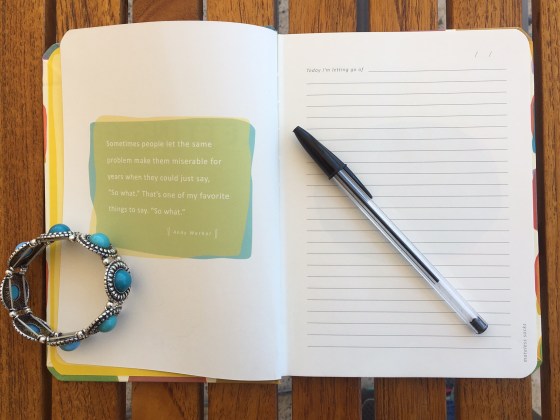 Sometimes people let the same
problem make them miserable for
years when they could just say,
"So what." That's one of my favorite
things to say. "So what."
[ Andy Warhol ]
Today I'm letting go of